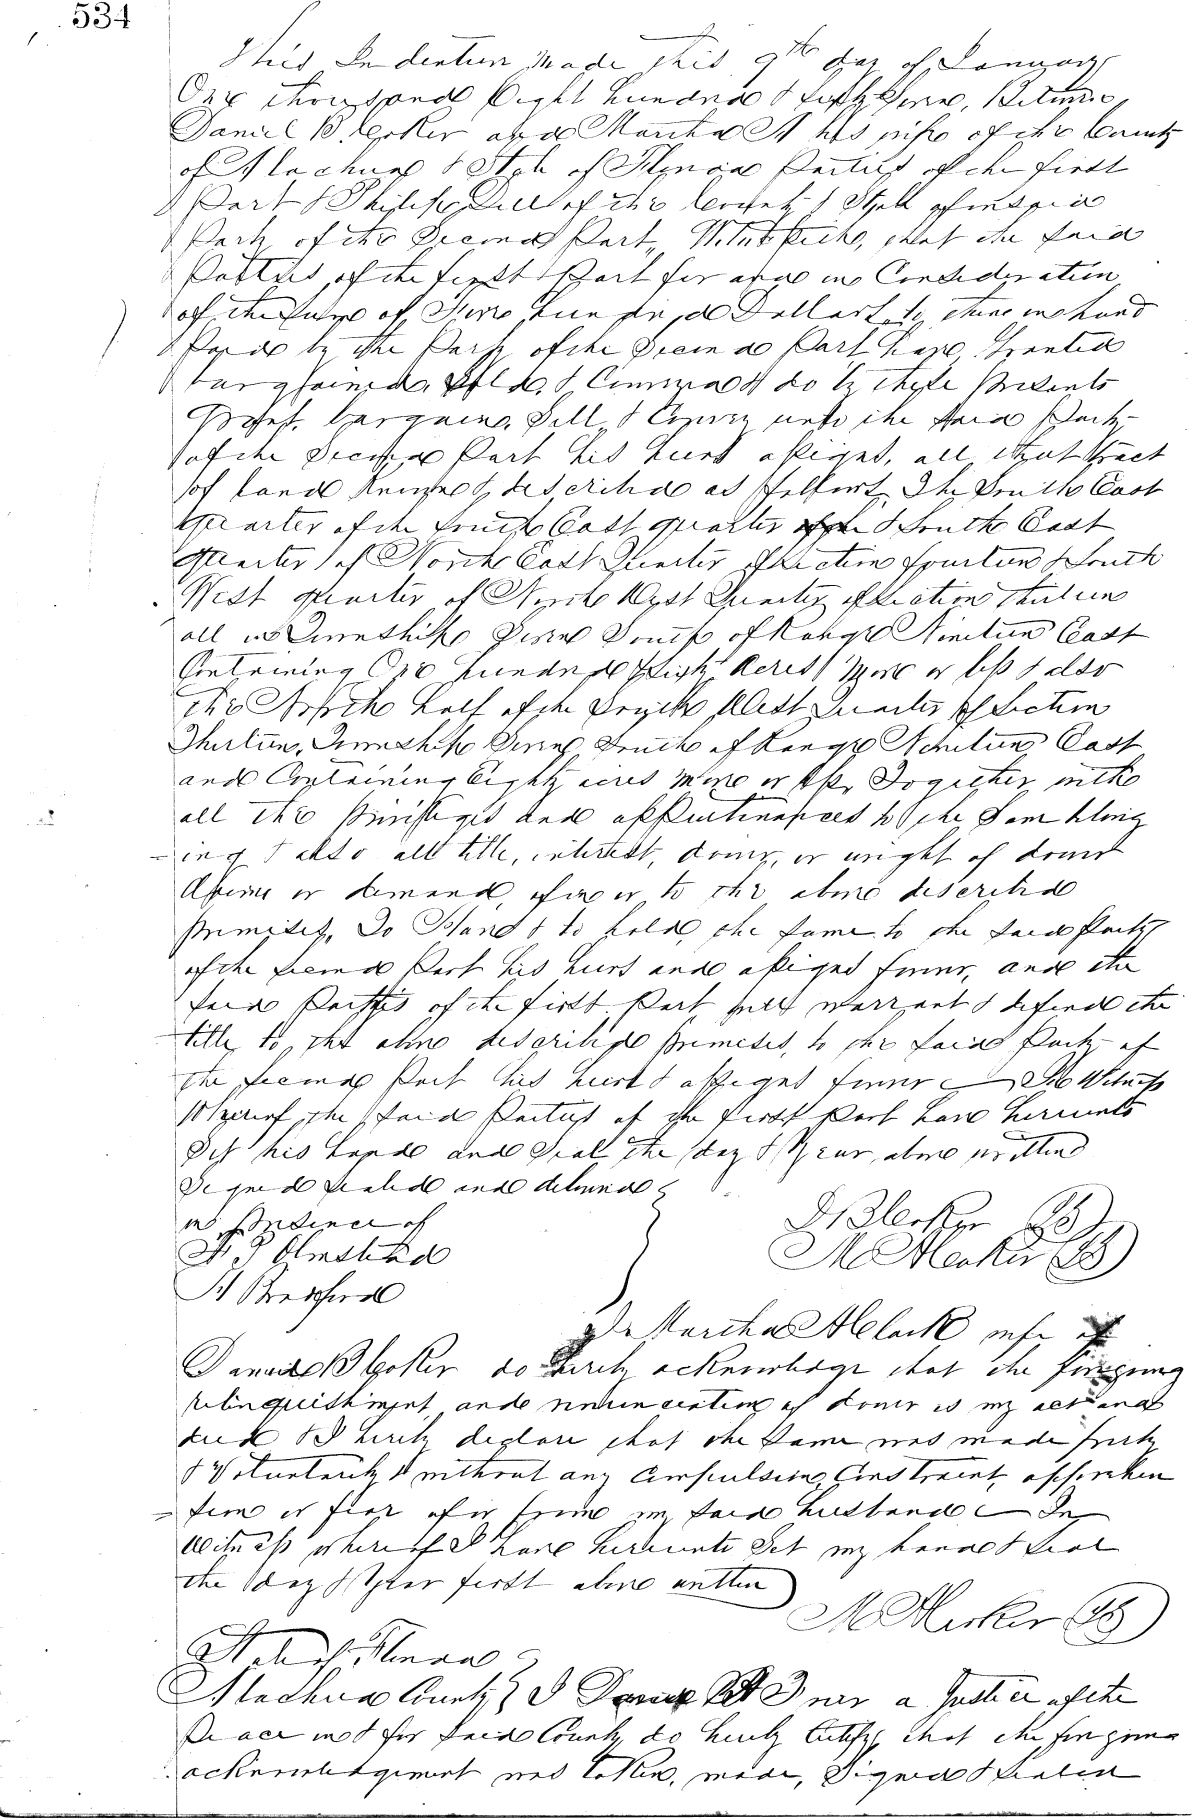 534
This Indenture made this 9th day of January
One thousand Eight hundred & fifty Seven, Between
Daniel B. and Martha A his wife of the County
of Alachua & State of Florida Parties of the first
Part & Philip Dell of the County & State aforesaid
Party of the Second Part, Witnesseth, that the said
Parties of the first Part for and in Consideration
of the Sum of hundred Dollars to them in hand
Paid by the Party of the Second Part have Granted
bargained, Sold, & Conveyed & do by these Presents
Grant, bargain, Sell & Convey unto the said Party
of the Second Part his heirs assigns, all that tract
of land Known & described as follows, The South East
quarter of the South East quarter & South East
quarter of North East Quarter of Section fourteen & South
West quarter of North West Quarter of Section thirteen
all in Township Seven South of Range Nineteen East
Containing One hundred & Acres More or less & also
the North half of the South West Quarter of Section
Thirteen, Township Seven South of Range Nineteen East
and Containing Eighty acres more or less, Together with
all the Privileges and appurtenances to the Same belong
-ing & also all title, interest, dower, or right of dower
or demand, of in or to the above described
premises, To Have & to hold, the same to the said Party
of the Second Part his heirs and assigns forever, and the
said Parties of the first Part will warrant & defend the
title to the above described premises, to the said Party of
the Second Part his heirs & assigns forever In Witness
Whereof the said Parties of the first Part have hereunto
Set his hand and Seal the day & Year above written
Signed Sealed and delivered
in presence of
Olmstead

M
I Martha A wife of
Daniel B do hereby acknowledge that the foregoing
relinquishment and renunciation of dower is my act and
deed & I hereby declare that the same was made freely
& Voluntarily & without any Compulsion, Constraint, apprehen
-sion or fear of or from my said husband In
Witness whereof I have hereunto Set my hand & Seal
the day & Year first above written
M
State of Florida
Alachua County I a Justice of the
Peace in & for said County do hereby Certify that the foregoing
acknowledgement was taken, made, Signed & Sealed